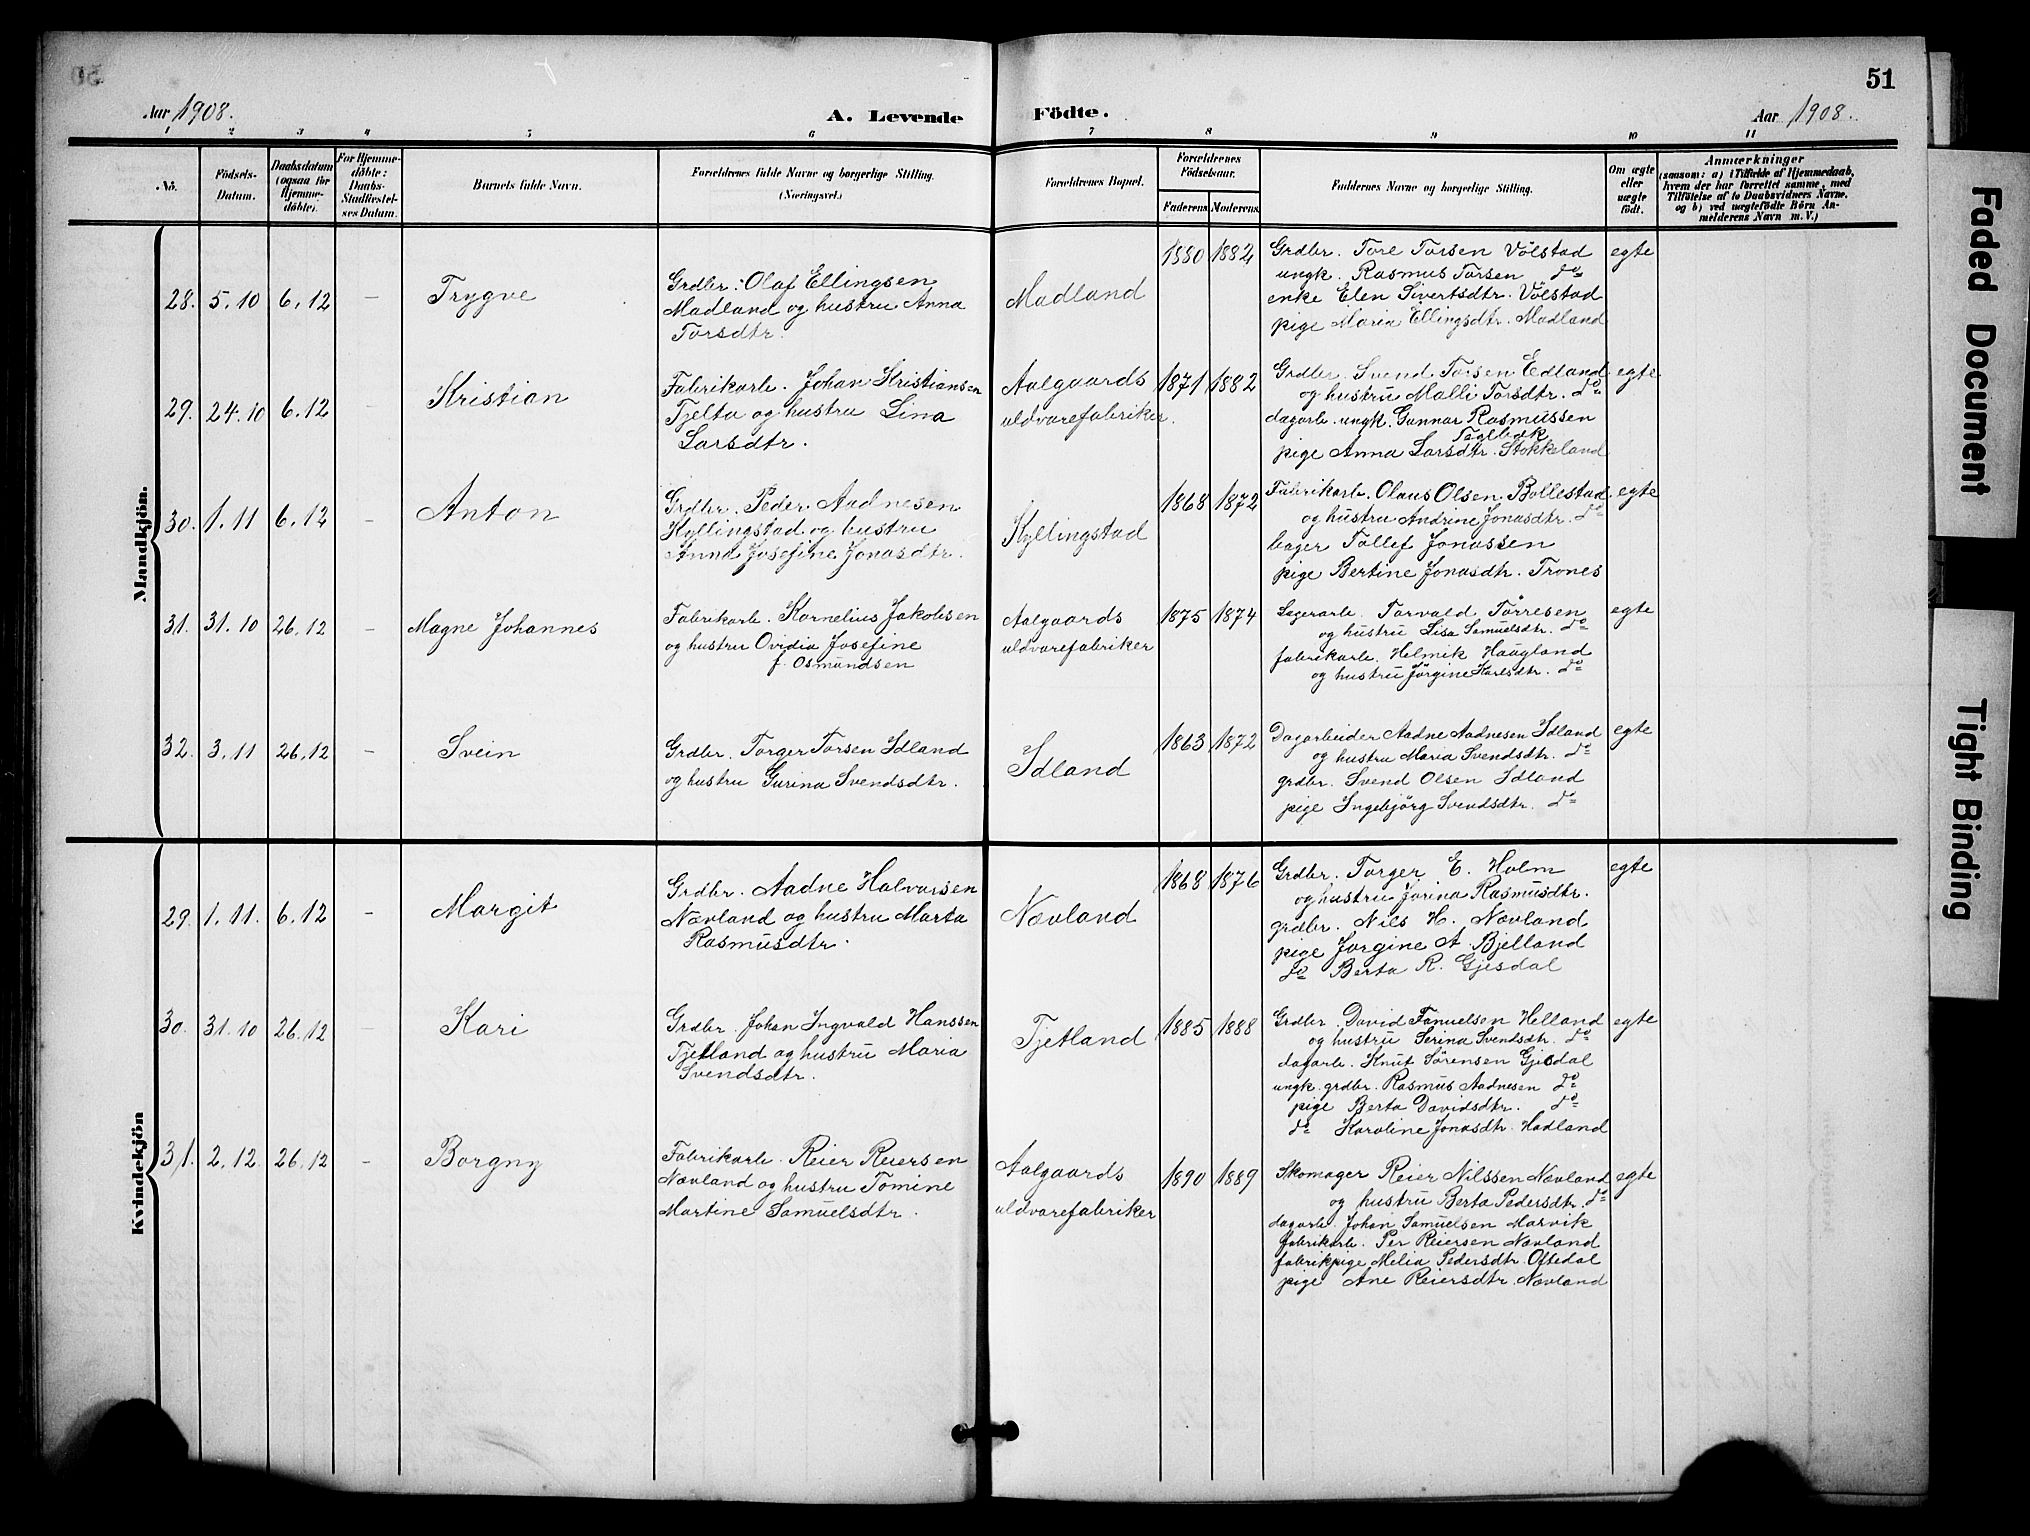 51
Aar 1908.
A. Levende Födte.
Aar 1908.
1 2 3 4 5 6 7 8 9 10 11
No.
Födsels-
Datum.
Daabsdatum
(ogsaa for
Hjemme-
döbte).
For Hjemme-
döbte:
Daabs-
Stadfæstel-
ses Datum.
Barnets fulde Navn.
Forældrenes fulde Navne og borgerlige Stilling.
(Næringsvei.)
Forældrenes Bopæl.
Forældrenes
Födselsaar.
Faderens. Moderens.
Faddernes Navne og borgerlige Stilling.
Om ægte
eller
uægte
födt.
Anmærkninger
(saasom: a) i Tilfælde af Hjemmedaab,
hvem der har forrettet samme, med
Tilföielse af to Daabsvidners Navne.
og b) ved uægtefödte Börn An-
melderens Navn m. V.)
Mandkjön.
28. 5.10 6.12 — Trygve
Grdbr. Olaf Ellingsen
Madland og hustru Anna
Torsdtr.
Madland
1880 1882
Grdbr. Tore Torsen Völstad
ungk. Rasmus Torsen do
enke Elen Sivertsdtr. Völstad
pige Maria Ellingsdtr. Madland
egte
29. 24.10 6.12 — Kristian
Fabrikarb. Johan Kristiansen
Tjelta og hustru Lina
Larsdtr.
Aalgaards
uldvarefabriker.
1871 1882
Grdbr. Svend Torsen Edland
og hustru Malli Torsdtr. do
dagarb. ungk. Gunnar Rasmussen
pige Anna Larsdtr. Stokkeland
egte
30. 1.11 6.12 — Anton
Grdbr. Peder Aadnesen
Kyllingstad og hustru
Anna Josefine Jonasdtr.
Kyllingstad
1868 1872
Fabrikarb. Olaus Olsen Bollestad
og hustru Andrine Jonasdtr. do
bager Tollef Jonassen
pige Bertine Jonasdtr. Trones
egte
31. 31.10 26.12 — Magne Johannes
Fabrikarb. Kornelius Jakobsen
og hustru Ovidia Josefine
f. Osmundsen
Aalgaards
uldvarefabriker
1875 1874
Lagerarb. Torvald Törresen
og hustru Lisa Samuelsdtr. do
fabrikarb. Helmik Haugland
og hustru Jörgine Karlsdtr. do
egte
32. 3.11 26.12 — Svein
Grdbr. Torger Torsen Idland
og hustru Gurina Svendsdtr.
Idland
1863 1872
Dagarbeider Aadne Aadnesen Idland
og hustru Maria Svendsdtr. do
grdbr. Svend Olsen Idland
pige Ingebjörg Svendsdtr. do
egte
Kvindekjön
29. 1.11. 6.12 — Margit
Grdbr. Aadne Halvorsen
Nævland og hustru Marta
Rasmusdtr.
Nævland
1868 1876
Grdbr. Torger E. Holm
og hustru Jorina Rasmusdtr.
grdbr. Nils H. Nævland
pige Jorgine A. Bjelland
do Berta R. Gjesdal
egte
30. 31.10 26.12 — Kari
Grdbr. Johan Ingvald Hanssen
Tjetland og hustru Maria
Svendsdtr.
Tjetland
1885 1888
Grdbr. David Samuelsen Helland
og hustru Serina Svendsdtr. do
dagarb. Knut Sörensen Gjesdal
ungk. grdbr. Rasmus Aadnesen do
pige Berta Davidsdtr. do
do Karoline Jonasdtr. Hadland
egte
31. 2.12. 26.12 — Borgny
Fabrikarb. Reier Reiersen
Nævland og hustru Tomine
Martine Samuelsdtr.
Aalgaards
uldvarefabriker
1890 1889
Skomager Reier Nilssen Nævland
og hustru Berta Pedersdtr. do
dagarb. Johan Samuelsen Masvik
fabrikarb. Per Reiersen Nævland
fabrikpige Melia Pedersdtr. Oftedal
pige Ane Reiersdtr. Nævland
egte
Faded Document
Tight Binding